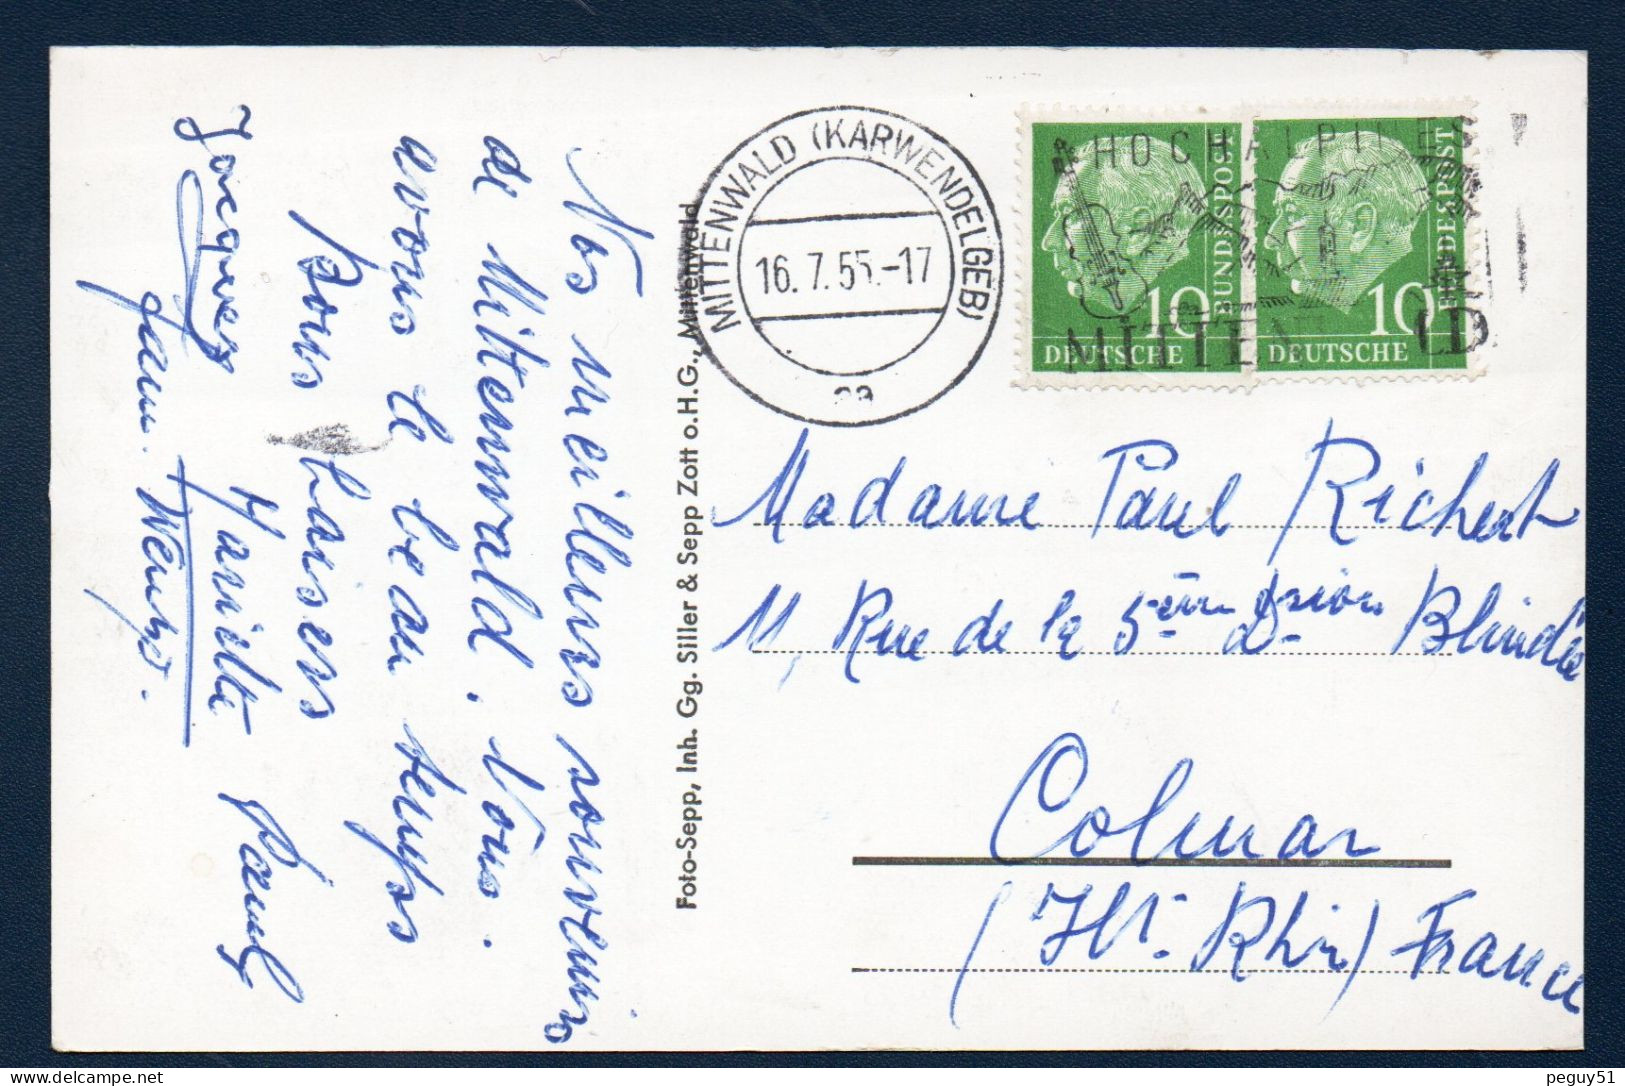 Nos meilleurs souvenirs
de Mittenwald. Nous
avons le beau temps
Bons baisers
Mariette Paul
Jacques
fam. Wentzo.
Foto-Sepp, Inh. Gg. Siller & Sepp Zott o.H.G., Mittenwald
MITTENWALD (KARWENDELGEB)
16.7.55.-17
aa
HOCH
MITTEN
10
DEUTSCHE
BUNDESPOST
10
DEUTSCHE
BUNDESPOST
Madame Paul Richert
11, Rue de la 5ème Dsion Blindée
Colmar
(Ht. Rhin) France
peguy51